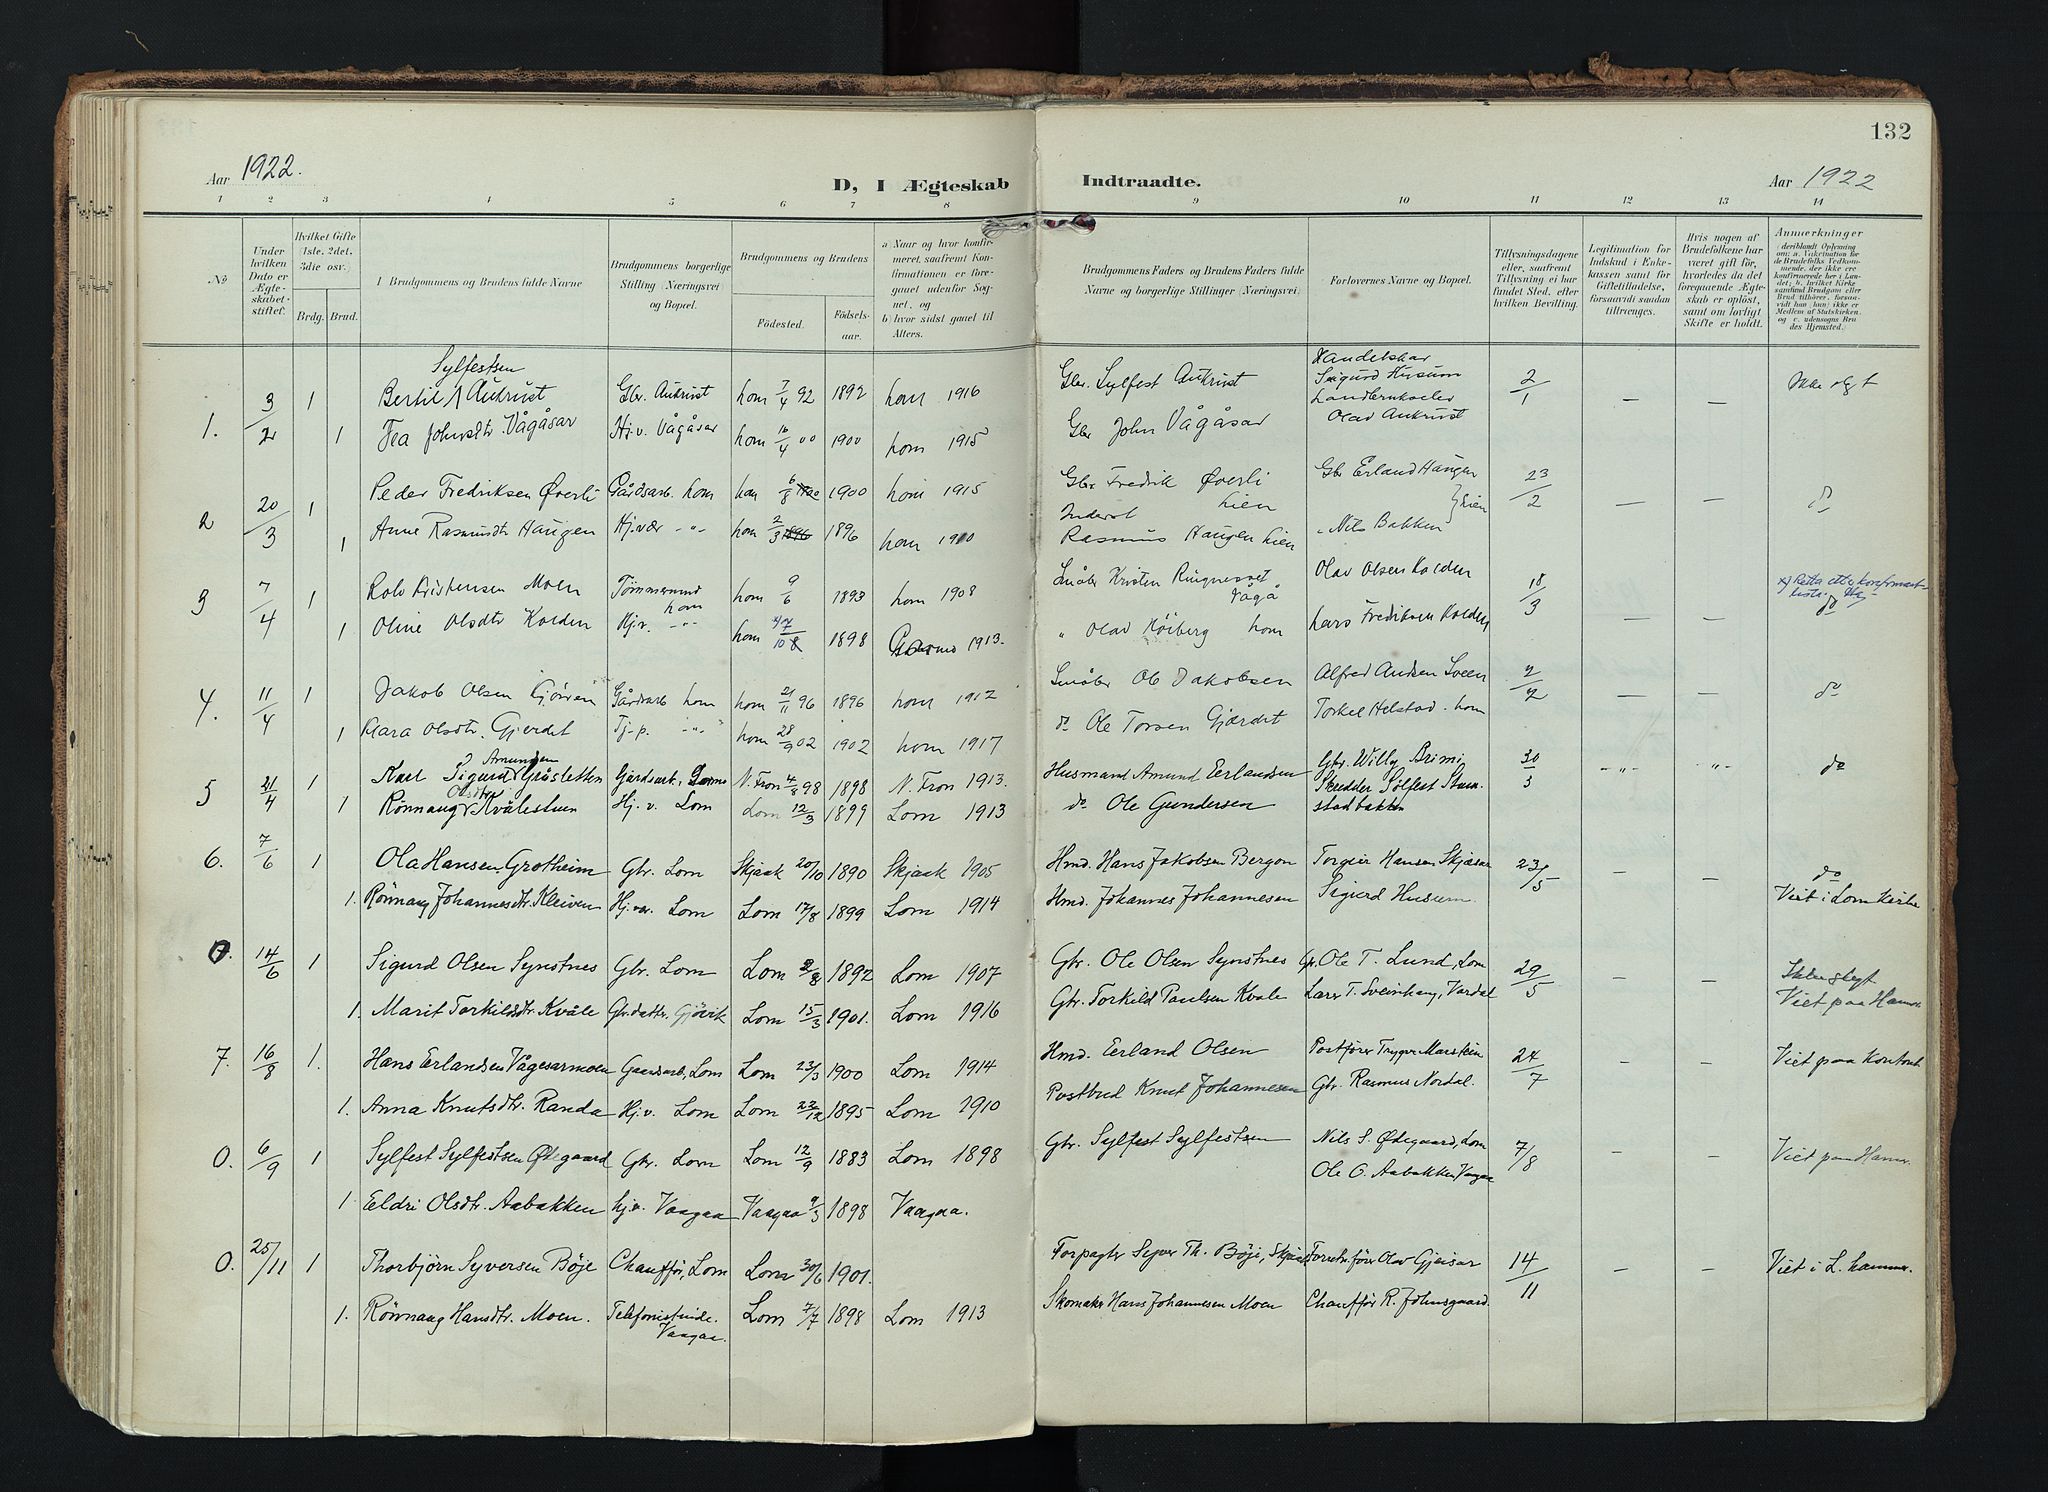 132
Aar 1922.
D, I Ægteskab Indtraadte.
Aar 1922
1 2 3 4 5 6 7 8 9 10 11 12 13 14
No
Under hvilken Dato er Ægteskabet stiftet.
Hvilket Gifte (1ste, 2det, 3die osv.)
Brdg. Brud.
Brudgommens og Brudens fulde Navne
Brudgommens borgerlige Stilling (Næringsvei) og Bopæl.
Brudgommens og Brudens
Födested. Födselsaar.
a) Naar og hvor konfirmeret, saafremt Konfirmationen er foregaaet udenfor Sognet, og b) hvor sidst gaaet til Alters.
Brudgommens Faders og Brudens Faders fulde Navne og borgerlige Stillinger (Næringsvei)
Forlovernes Navne og Bopæl.
Tillysningsdagene eller, saafremt Tillysning ei har fundet Sted, efter hvilken Bevilling.
Legitimation for Indskud i Enkekassen samt for Giftetilladelse, forsaavidt saadan tiltrænges.
Hvis nogen af Brudefolkene har været gift för, hvorledes da det foregaaende Ægteskab er oplöst, samt om lovligt Skifte er holdt.
Anmærkninger
1. 3/2 1 Bertil Sylfestsen Aukrust Gbr. Aukrust Lom 7/4 92 1892 Lom 1916 Gbr. Sylfest Aukrust Handelskar Sigurd Husum 2/1 — — Ikke slgt
1 Tea Johnsdtr. Vågåsar Hj.v. Vågåsar Lom 16/4 00 1900 Lom 1915 Gbr John Vågåsar Olav Aukrust
2 20/3 1 Peder Fredriksen Øverli Gårdsarb. Lom Lom 6/8 1900 Lom 1915 Gbr Fredrik Øverli Lien Gbr Erland Haugen Lien 23/2 — — do
1 Anne Rasmusdtr Haugen Hj.vær -"- Lom 2/3 1896 1896 Lom Inderst Rasmus Haugen Lien " Nils Bakken
3 7/4 1 Rolv Kristensen Moen Tømmermand Lom Lom 9/6 1893 Lom 1908 Småbr Kristen Ringneset Vågå Olav Olsen Kolden 18/3 — — do
1 Oline Olsdtr Kolden Hj.v. -"- Lom 1898 Garmo 1913. " Olav Lom Lars Fredriksen Kolden
4. 11/4 1 Jakob Olsen Gårdsarb Lom Lom 21/11 96 1896 Lom 1912 Småbr Ole Jakobsen Alfred Sveen — — do
1 Klara Olsdtr. Gjerdet Tj.p. -"- Lom 28/9 02 1902 Lom 1917 do Ole Torsen Gjærdet Torkel Helstad. Lom
5 21/4 1 Karl Sigurd Amundsen Gråsletten Gårdsarb. Lom N. Fron 4/8 98 1898 N. Fron 1913. Husmand Amund Erlandsen Gbr. Willy Brimi 30/3 -"- -"- do
1 Rønnaug Olsdtr Kvålestuen Hj. v. Lom Lom 12/3 1899 Lom 1913 do Ole Gundersen Skredder Sølfest Stamstadbakken
6. 7/6 1 Ola Hansen Grotheim Gbr. Lom Skjaak 20/10 1890 Skjaak 1905 Hmd. Hans Jakobsen Bergon Torgeir Hansen Skjæsar 23/5 — — do
1. Rønnaug Johannesdtr. Kleiven Hj.v. Lom Lom 17/8 1899 Lom 1914 Hmd. Johannes Johannesen Sigurd Husum. Viet i Lom Kirke
0. 14/6 1 Sigurd Olsen Synstnes Gbr. Lom Lom 2/8 1892 Lom 1907 Gbr. Ole Olsen Synstnes Gbr. Ole T. Lund, Lom 29/5 — —
1. Marit Torkildsdtr. Kvåle Gbr.datter. Gjövik Lom 15/3 1901. Lom 1916 Gbr. Torkild Paulsen Kvale Lars T. Sveinhaug, Vardal Viet paa Hamar
7. 16/8 1. Hans Erlandsen Vågesarmoen Gaardsarb, Lom Lom 23/3 1900 Lom 1914 Hmd. Erland Olsen Postfører Trygve Marstein 24/7 — — Viet paa Kontoret
1. Anna Knutsdtr. Randa Hj.v. Lom Lom 22/12 1895 Lom 1910 Postbud Knut Johannesen Gbr. Rasmus Nordal.
0. 6/9 1 Sylfest Sylfestsen Ødegaard Gbr. Lom Lom 12/9 1883 Lom 1898 Gbr. Sylfest Sylfestsen Nils S. Ødegaard, Lom 7/8 — — Viet paa Hamar.
1 Eldri Olsdtr. Aabakken hj.v. Vaagaa Vaagaa 9/3 1898 Vaagaa. Ole O. Aabakken Vaagaa
0. 25/11 1 Thorbjörn Syversen Böje Chauffør, Lom Lom 30/6 1901. Forpagter Syver Th. Böje, Skjaak Forretn.fører Olav Gjeisar 14/11 — — Viet i L.hammer.
1. Rönnaug Hansdtr. Moen. Telefonistinde. Vaagaa. Lom 7/7 1898 Lom 1913 Skomaker Hans Johannesen Moen Chauffør R. Johnsgaard.